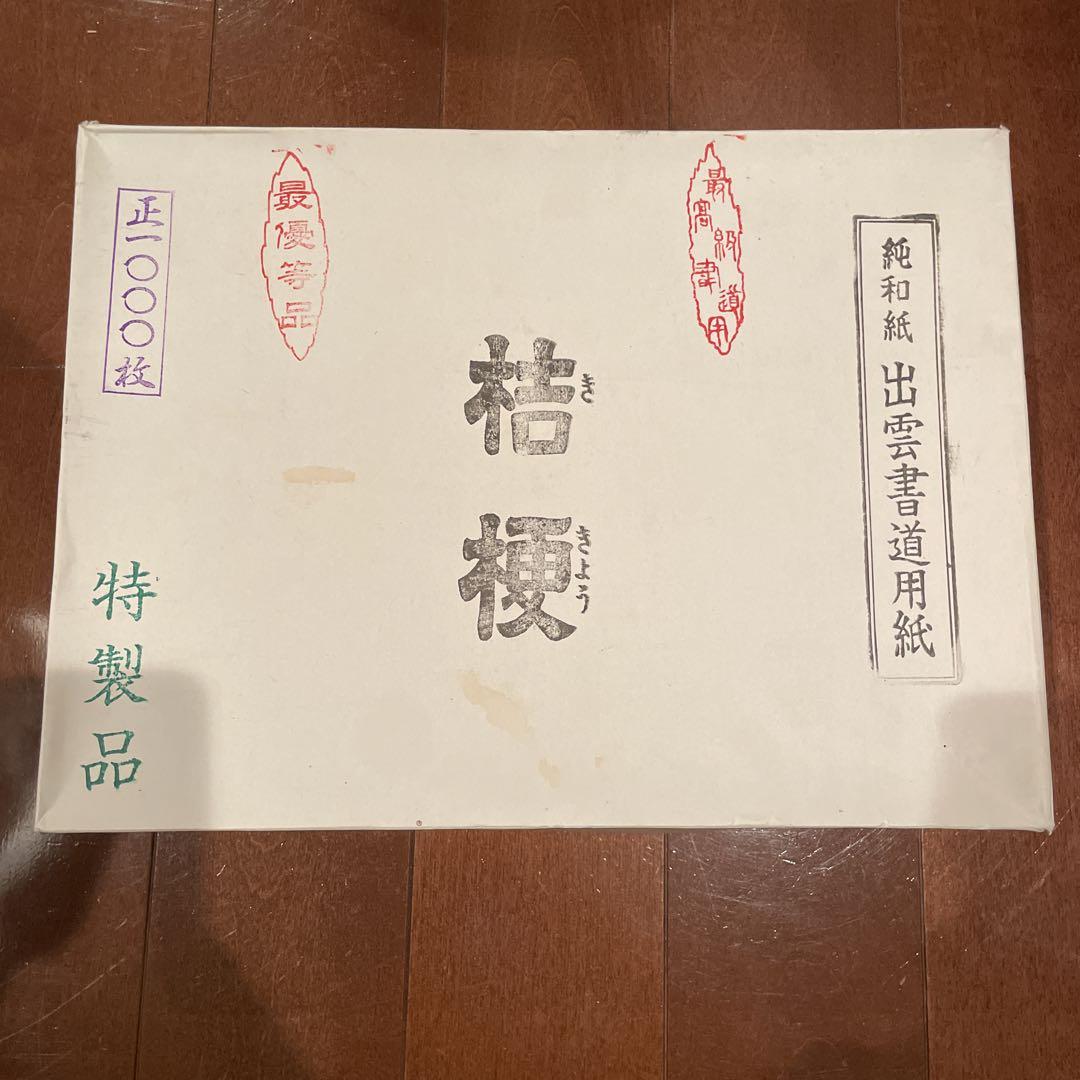 純和紙 出雲書道用紙
最高級書道用
桔梗
ききょう
最優等品
正一〇〇〇枚
特製品